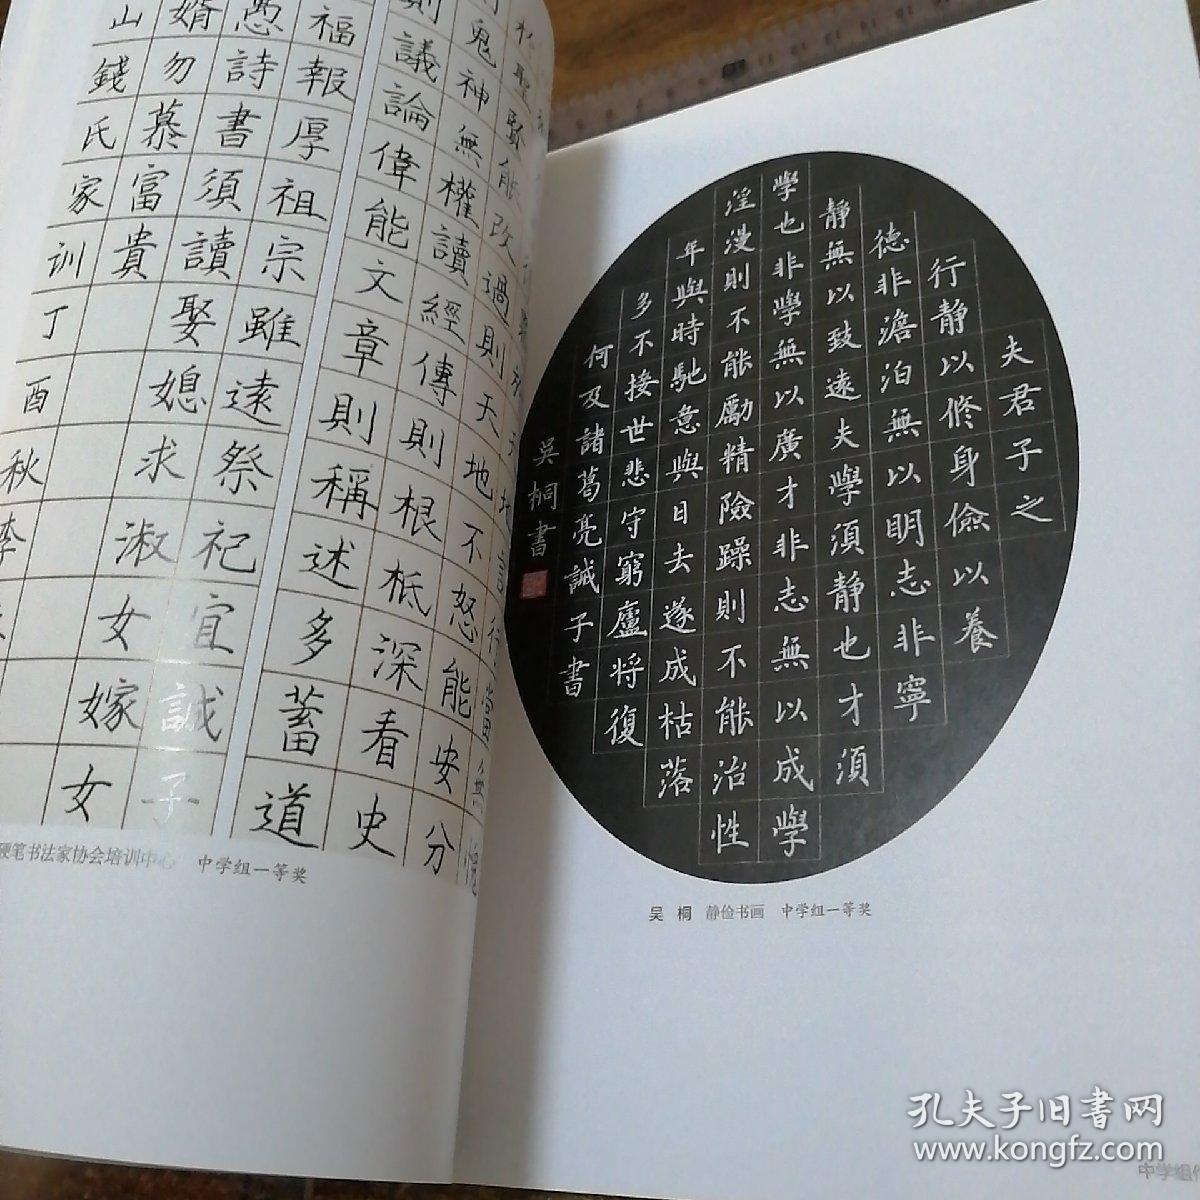 聖賢能改過則天地不怒能安分
鬼神無權讀經傳則根柢深看史
則議論偉能文章則稱述多蓄道
福報厚祖宗雖遠祭祀宜誠子
憑詩書須讀娶媳求淑女嫁女
婿勿慕富貴
山錢氏家訓丁酉秋李
硬笔书法家协会培训中心 中学组一等奖
夫君子之
行靜以修身儉以養
德非澹泊無以明志非寧
靜無以致遠夫學須靜也才須
學也非學無以廣才非志無以成學
淫漫則不能勵精險躁則不能治性
年與時馳意與日去遂成枯落
多不接世悲守窮廬將復
何及諸葛亮誡子書
吳桐書
吴桐 静俭书画 中学组一等奖
孔夫子旧书网
www.kongfz.com
中学组